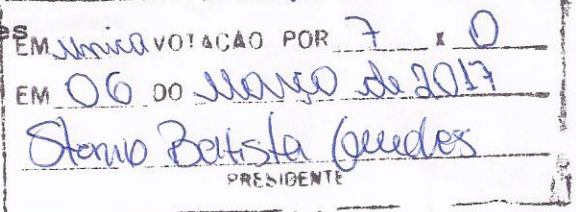 es
EM unica VOTACAO POR 7 x 0
EM 06 DO Março de 2017
Stenio Batista Guedes
PRESIDENTE